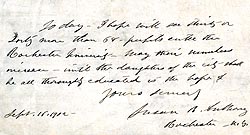 To day - I hope will see thirty or
forty more than 50 - pupils enter the
Rochester University - May their numbers
increase - until the daughters of the city shall
be all thoroughly educated is the hope of
Yours sincerely
Susan B. Anthony
Sept. 15, 1902 - Rochester - N.Y.